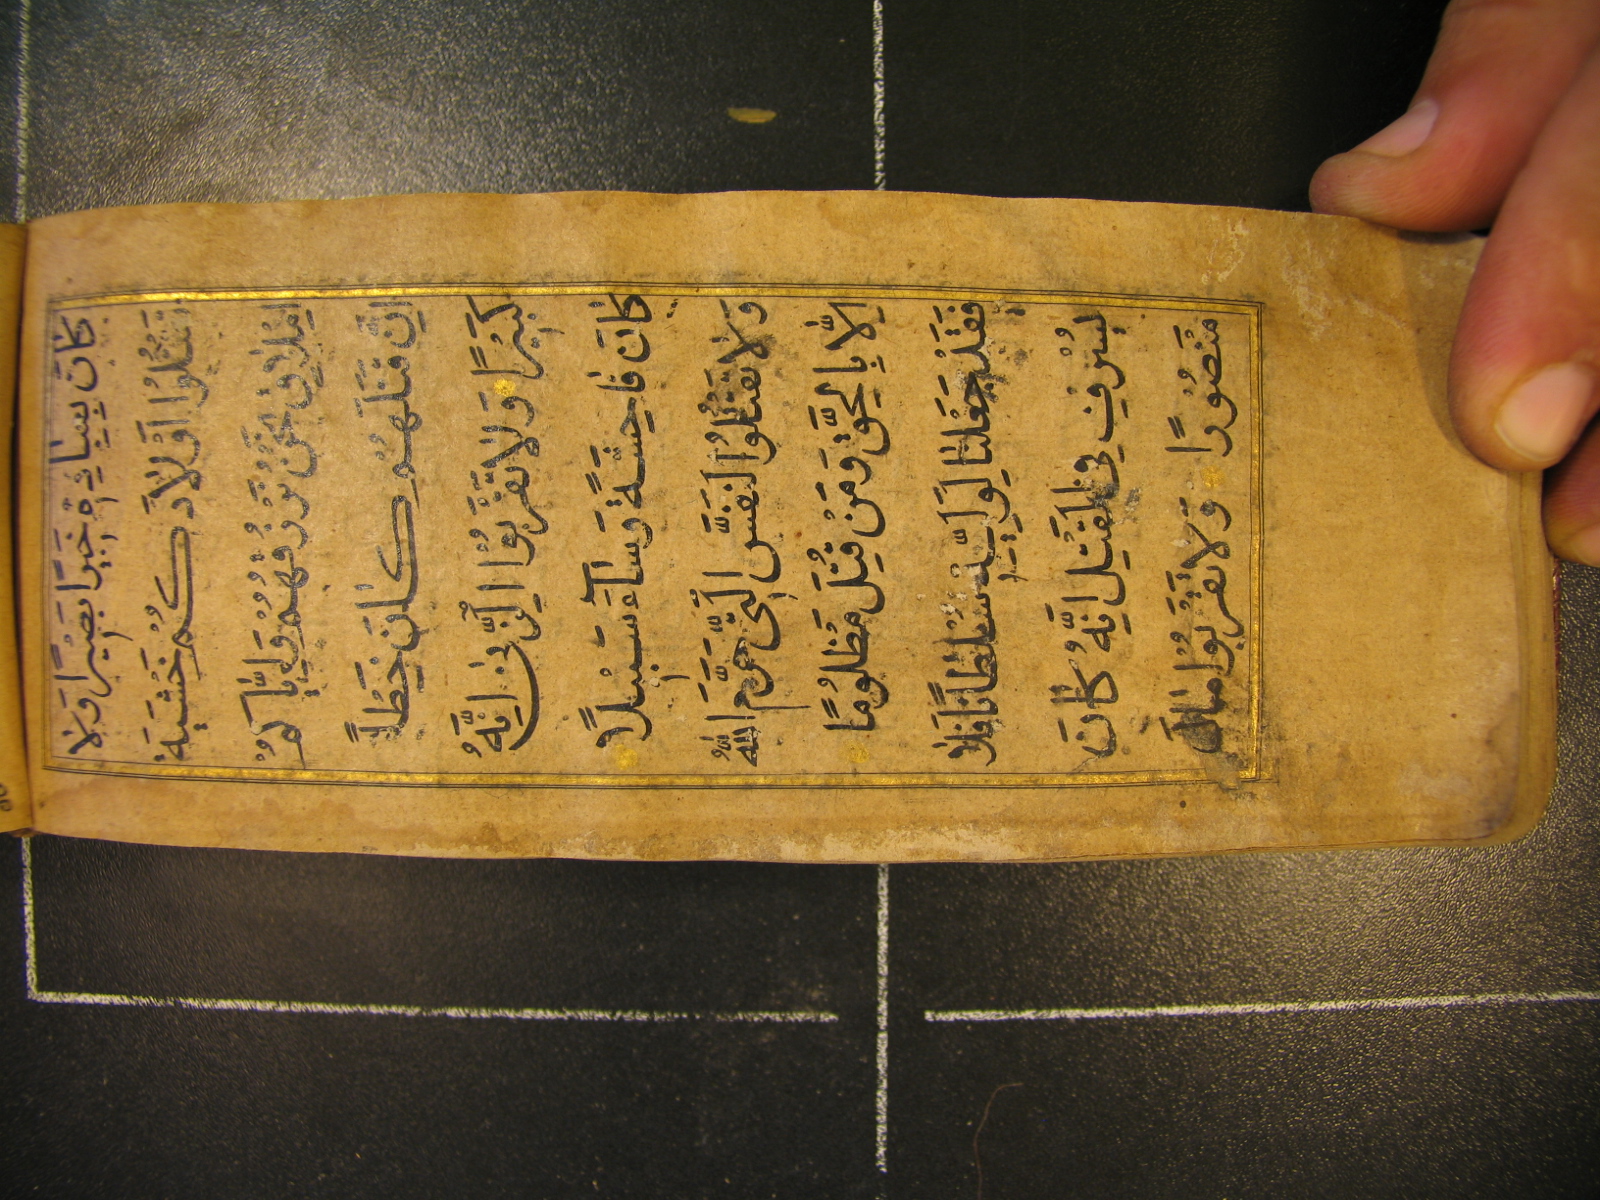 كَانَ بِعِبَادِهٖ خَبِيْرًا بَصِيْرًا وَلَا
تَقْتُلُوْا اَوْلَادَكُمْ خَشْيَةَ
اِمْلَاقٍ نَحْنُ نَرْزُقُهُمْ وَاِيَّاكُمْ
اِنَّ قَتْلَهُمْ كَانَ خِطْـًٔا
كَبِيْرًا وَلَا تَقْرَبُوْا الزِّنٰى اِنَّهُ
كَانَ فَاحِشَةً وَسَآءَ سَبِيْلًا
وَلَا تَقْتُلُوْا النَّفْسَ الَّتِىْ حَرَّمَ اللّٰهُ
اِلَّا بِالْحَقِّ وَمَنْ قُتِلَ مَظْلُوْمًا
فَقَدْ جَعَلْنَا لِوَلِيِّهٖ سُلْطَانًا فَلَا
يُسْرِفْ فِى الْقَتْلِ اِنَّهُ كَانَ
مَنْصُوْرًا وَلَا تَقْرَبُوْا مَالَ